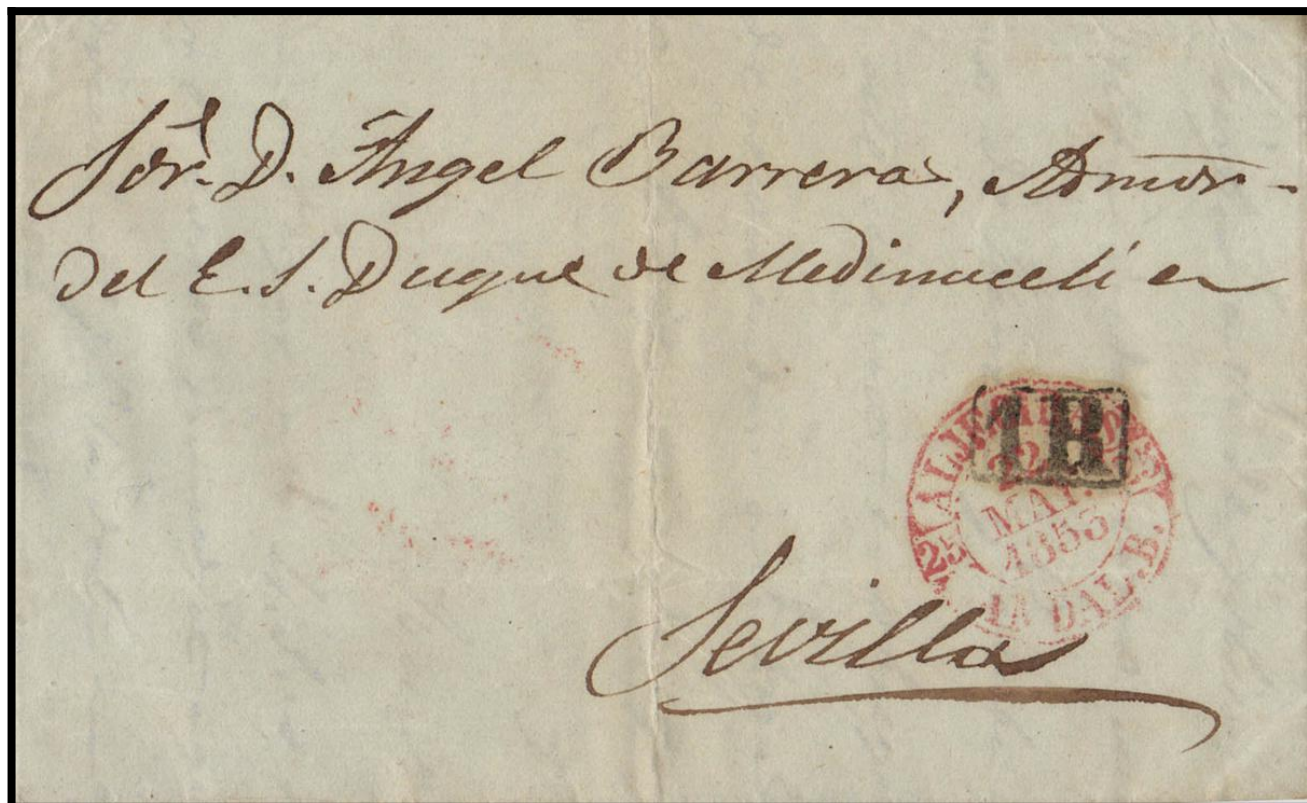 Sor. D. Angel Barrera, Admor.
del E. S. Duque de Medinaceli en
1R
ALJECIRAS
25
MAY.
1853
25
ANDAL. B.
Sevilla